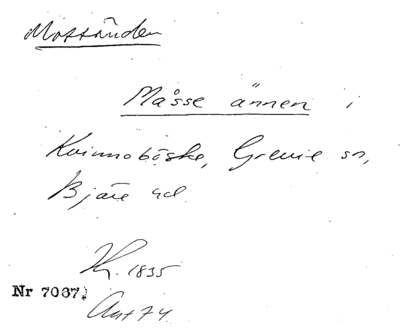 Mossänden
Måsse ännen i
Kvinnaböske, Grevie sn,
Bjäre hd
K. 1835
Nr 7037.
Ant 74